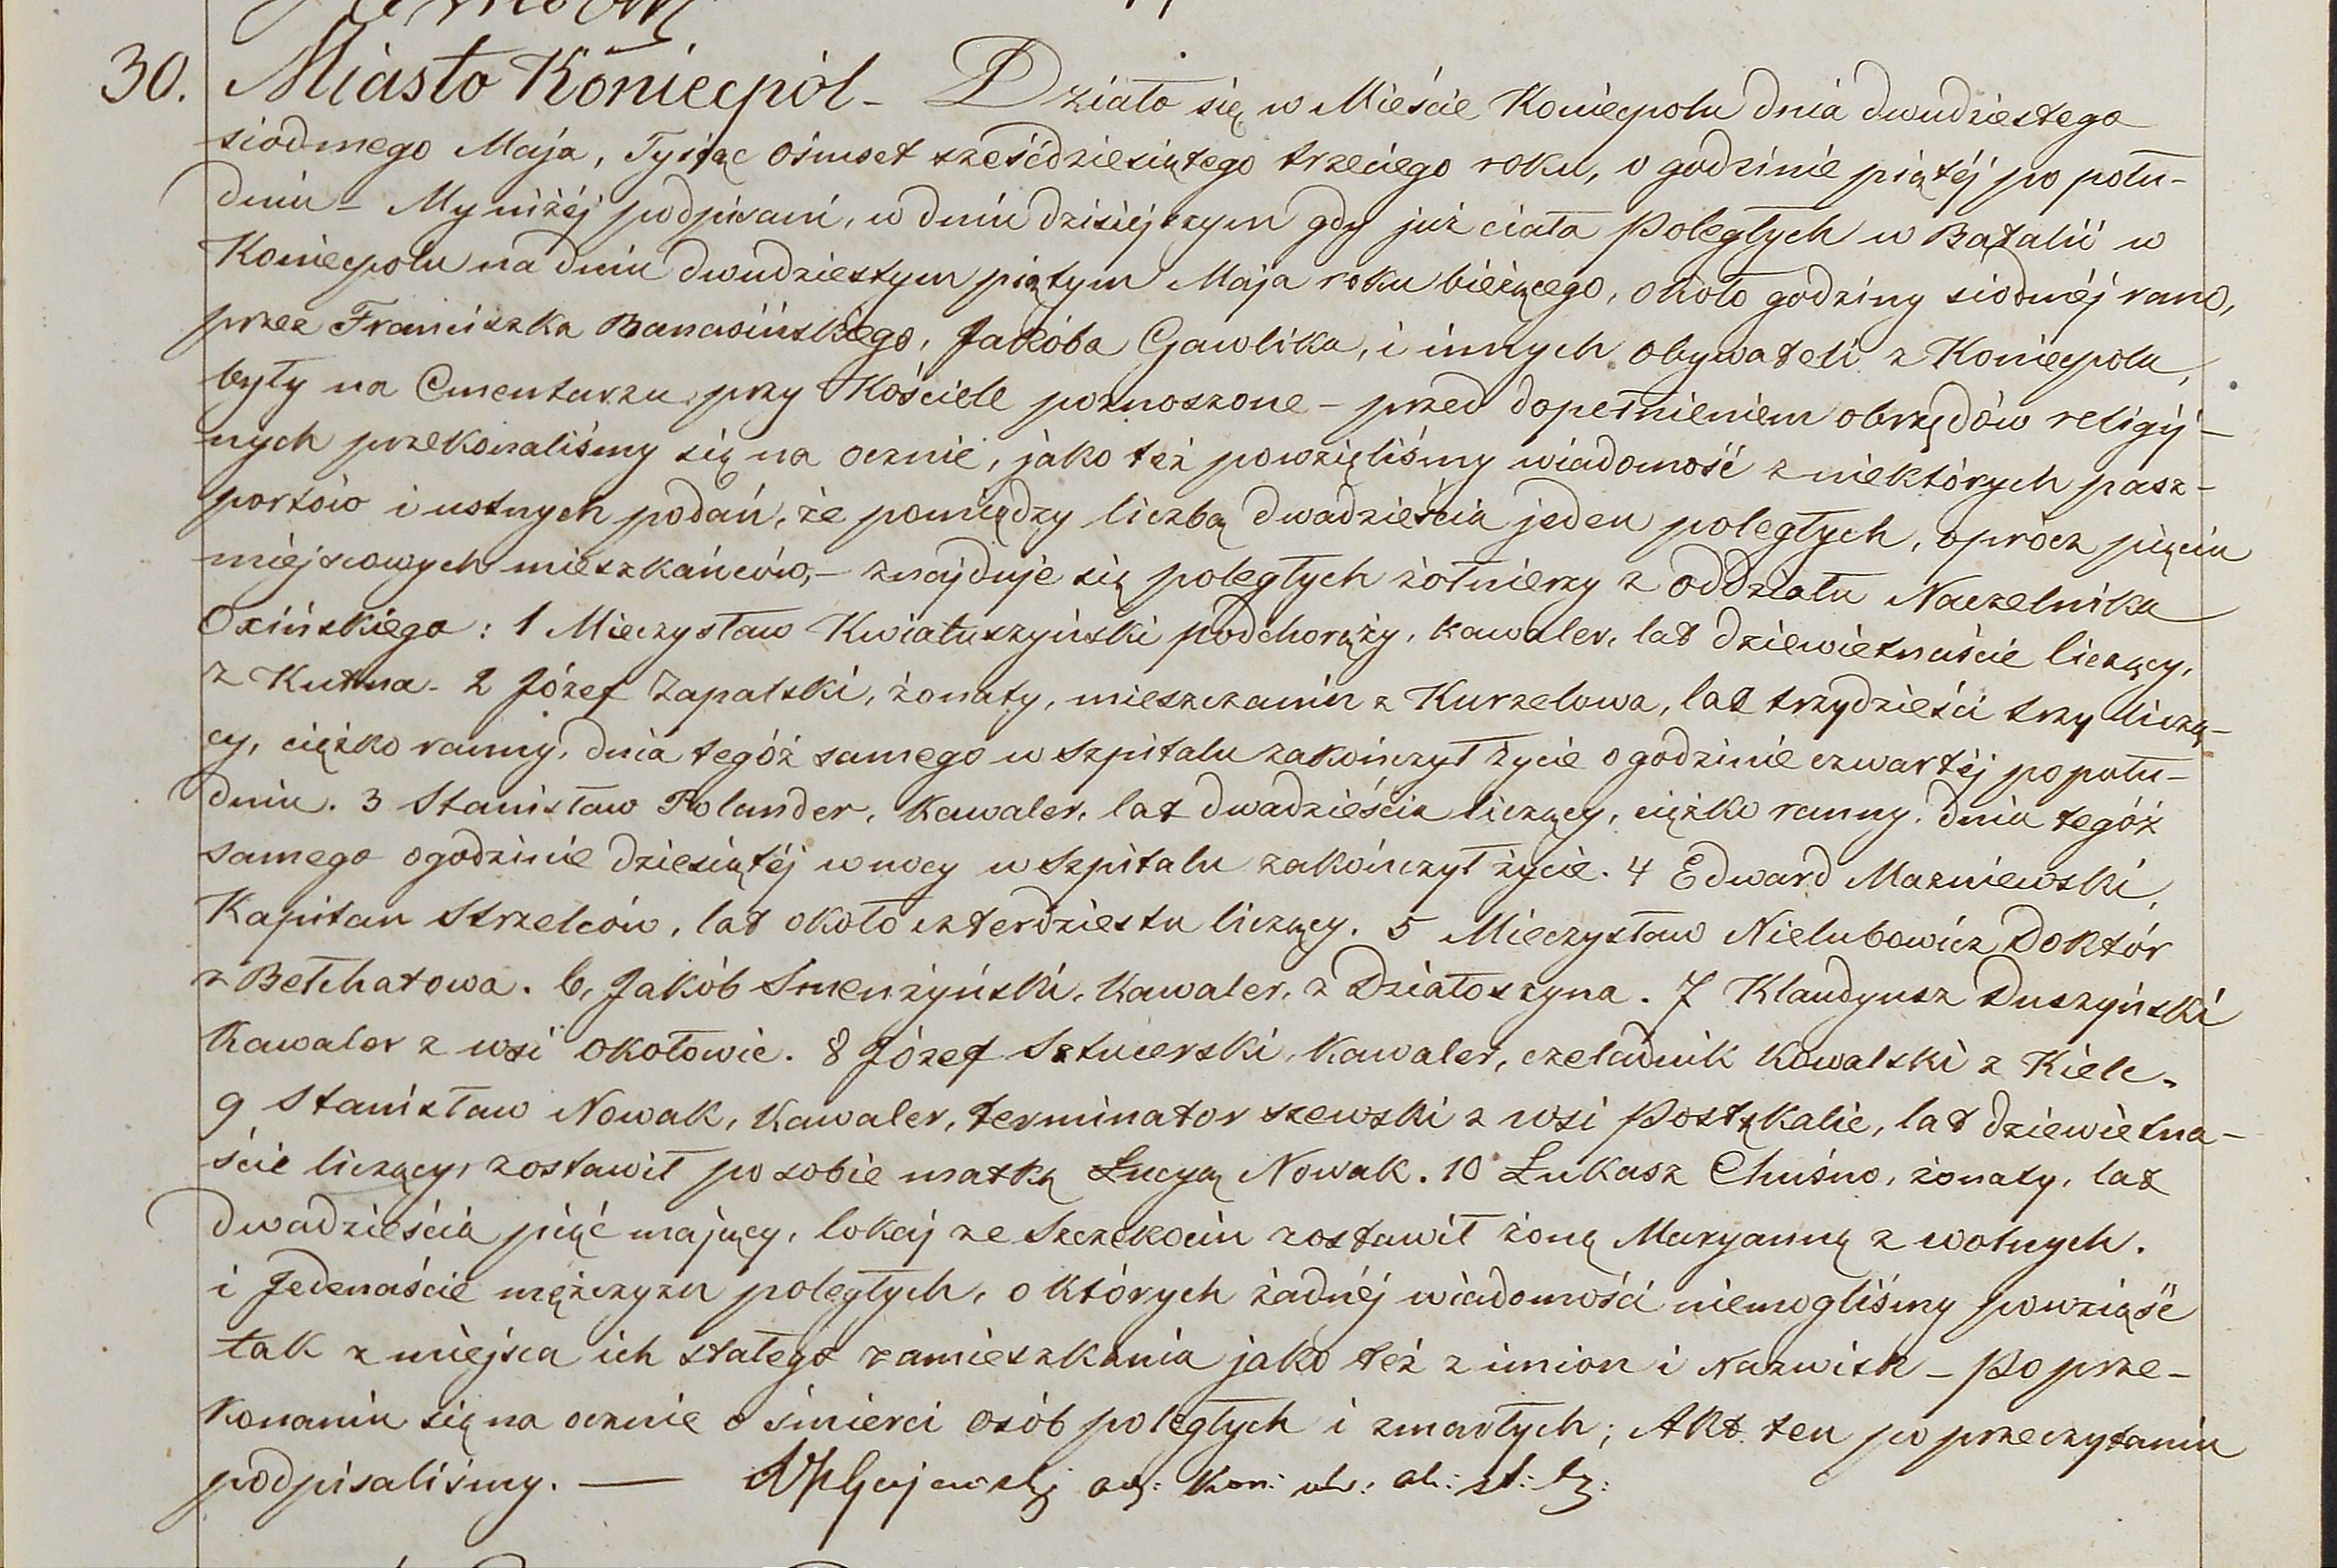 30. Miasto Koniecpól - Działo się w Mieście Koniecpolu dnia dwudziestego
siodmego Maja, Tysiąc ośmset sześćdziesiątego trzeciego roku, o godzinie piątéj po połu-
dniu - My niżéj podpisani, w dniu dzisiejszym gdy już ciała Poległych w Batalii w
Koniecpolu na dniu dwudziestym piątym Maja roku bieżącego, około godziny siodméj rano,
przez Franciszka Banasińskiego, Jakóba Gawlika, i innych obywateli z Koniecpola,
były na Cmentarzu przy Kościele poznoszone - przed dopełnieniem obrzędów religij-
nych przekonaliśmy się na ocznie, jako też powzięliśmy wiadomość z niektórych pasz-
portów i ustnych podań, że pomiędzy liczbą dwadzieścia jeden poległych, oprócz pięciu
miéjscowych mieszkańców, - znajduje się poległych żołnierzy z oddziału Naczelnika
Oxińskiego: 1 Mieczysław Kwiatuszyński podchorąży, kawaler, lat dziewietnaście liczący,
z Kutna - 2 Józef Zapalski, żonaty, mieszczanin z Kurzelowa, lat trzydzieści trzy liczą-
cy, ciężko ranny, dnia tegóż samego w Szpitalu zakończył życie o godzinie czwartéj po połu-
dniu. 3 Stanisław Rolander, Kawaler, lat dwadzieścia liczący, ciężko ranny, dnia tegóż
samego o godzinie dziesiątéj w nocy w Szpitalu zakończył życie. 4 Edward Mazniewski,
Kapitan Strzelców, lat około czterdziestu liczący. 5 Mieczysław Nielubowicz Doktór
z Bełchatowa. 6, Jakób Smenżyński, Kawaler, z Działoszyna. 7 Klaudyusz Duszyński
Kawaler z wsi Okołowic. 8 Józef Sztucerski, Kawaler, czeladnik Kowalski z Kielc.
9 Stanisław Nowak, Kawaler, terminator szewski z wsi Postękalic, lat dziewietna-
ście liczący, zostawił po sobie matkę Łucyą Nowak. 10 Łukasz Chuśno, żonaty, lat
dwadzieścia pięć mający, lokaj ze Szczekocin zostawił żonę Maryannę z wolnych.
i Jedenaście mężczyzn poległych, o których żadnéj wiadomości niemogliśmy powziąść
tak z miejsca ich stałego zamieszkania jako też z imion i Nazwisk - Po prze-
konaniu się na ocznie o śmierci osób poległych i zmarłych; Akt ten po przeczytaniu
podpisaliśmy. —